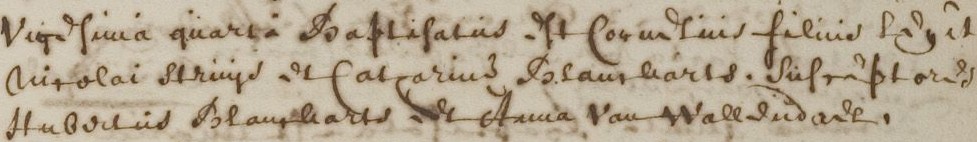 Vigesima quarta Baptisatus est Cornelius filius legit
Nicolai Struijs et Catharinæ Blanckarts. Susceptores
Hubertus Blanckarts et Anna Van Wallendael.